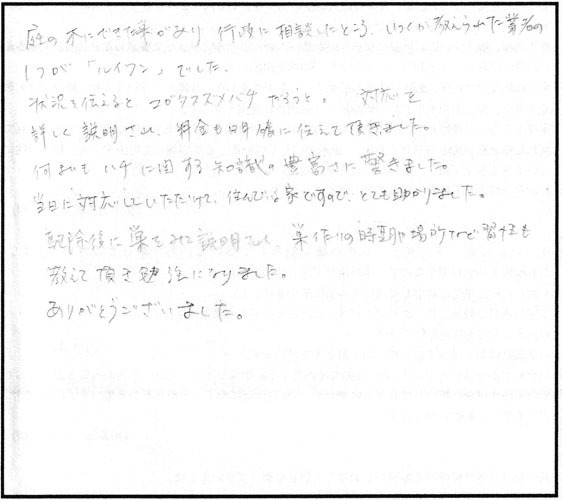 庭の木にできた巣があり 行政に相談したところ、いくつか教えられた業者の
1つが「ルイワン」でした。
状況を伝えると コガタスズメバチ だろうと。 対応を
詳しく 説明され、料金も明確に伝えて頂きました。
何よりも ハチに関する知識の豊富さに驚きました。
当日に対応していただけて、住んでいる家ですので、とても助かりました。
駆除後に巣をみて説明 巣作りの時期や場所など習性も
教えて頂き勉強になりました。
ありがとうございました。